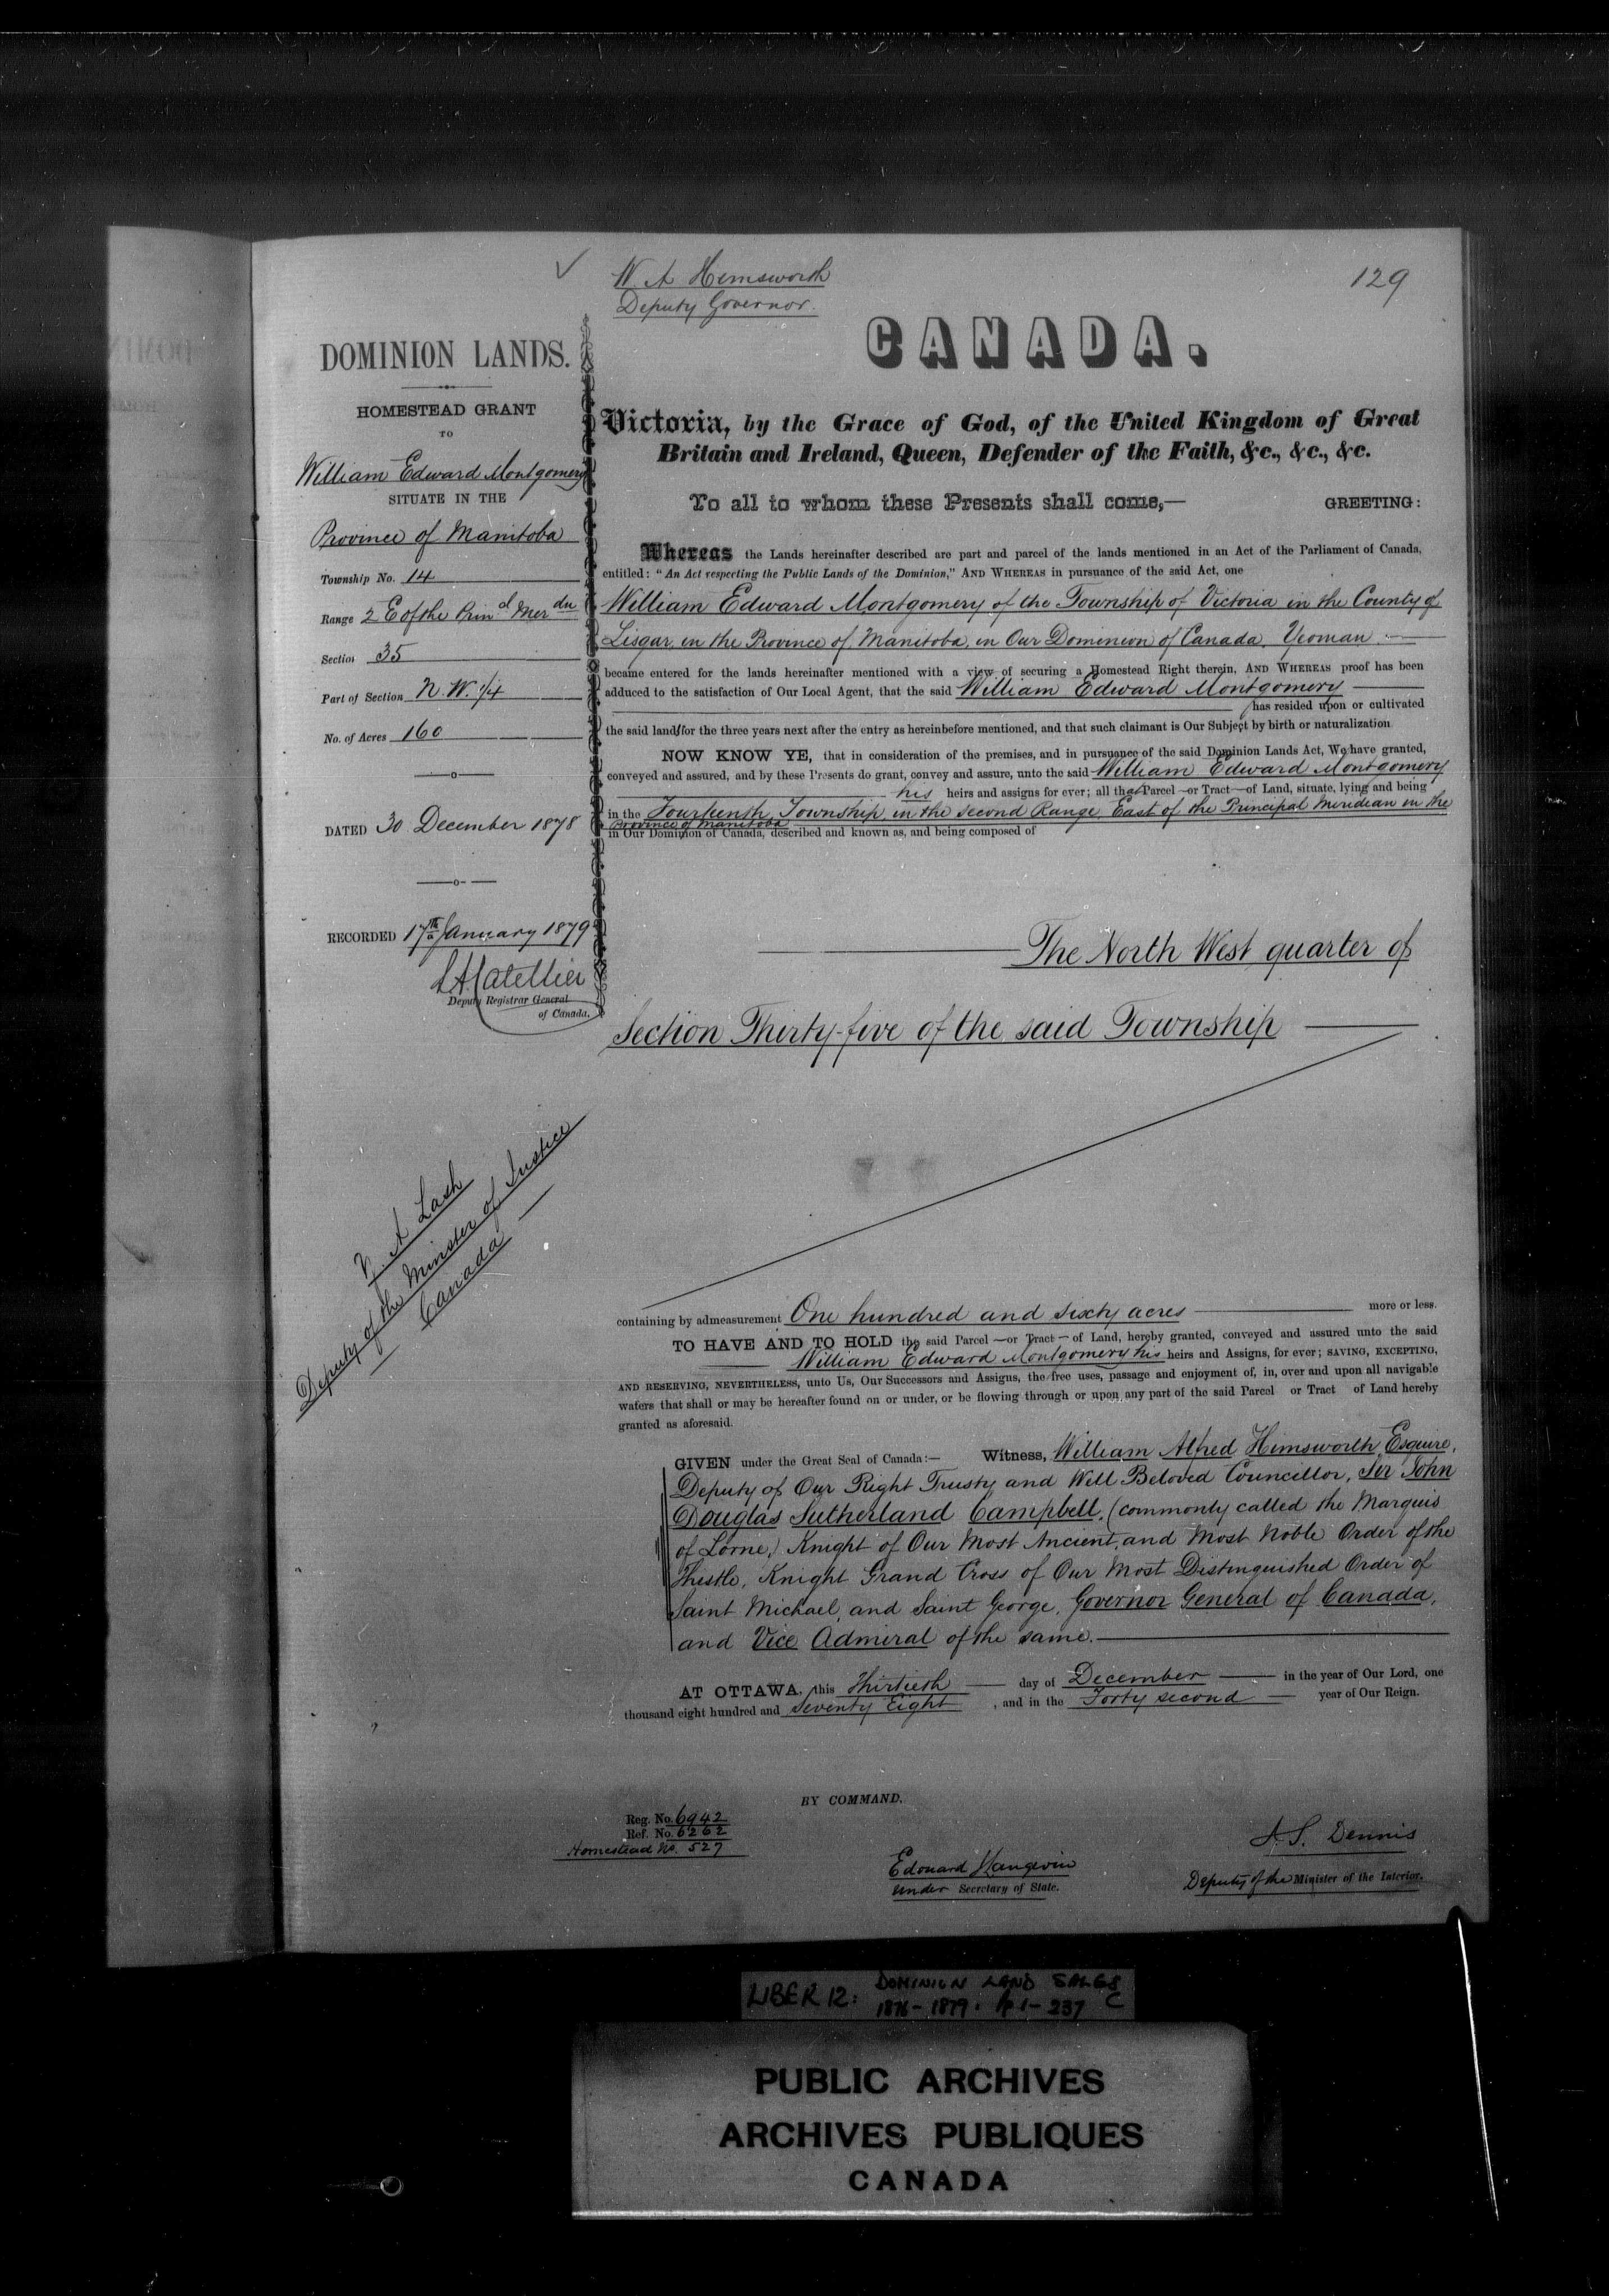 W. A Himsworth
Deputy Governor.
129
DOMINION LANDS.
HOMESTEAD GRANT
TO
William Edward Montgomery
SITUATE IN THE
Province of Manitoba
Township No. 14
Range 2 E of the Prinal Merdn
Section 35
Part of Section N. W. 1/4
No. of Acres 160
DATED 30 December 1878
RECORDED 17th January 1879
L A Catellier
Deputy Registrar General
of Canada.
Z. A Lash
Deputy of the Minister of Justice
Canada
CANADA.
Victoria, by the Grace of God, of the United Kingdom of Great
Britain and Ireland, Queen, Defender of the Faith, &c., &c., &c.
To all to whom these Presents shall come,— GREETING:
Whereas the Lands hereinafter described are part and parcel of the lands mentioned in an Act of the Parliament of Canada,
entitled: "An Act respecting the Public Lands of the Dominion," AND WHEREAS in pursuance of the said Act, one
William Edward Montgomery of the Township of Victoria in the County of
Lisgar, in the Province of Manitoba, in Our Dominion of Canada, Yeoman.
became entered for the lands hereinafter mentioned with a view of securing a Homestead Right therein, AND WHEREAS proof has been
adduced to the satisfaction of Our Local Agent, that the said William Edward Montgomery
has resided upon or cultivated
the said land for the three years next after the entry as hereinbefore mentioned, and that such claimant is Our Subject by birth or naturalization
NOW KNOW YE, that in consideration of the premises, and in pursuance of the said Dominion Lands Act, We have granted,
conveyed and assured, and by these Presents do grant, convey and assure, unto the said William Edward Montgomery
his heirs and assigns for ever; all that Parcel —or Tract—of Land, situate, lying and being
in the Fourteenth Township, in the second Range, East of the Principal Meridian in the
Province of Manitoba
in Our Dominion of Canada, described and known as, and being composed of
The North West quarter of
Section Thirty-five of the said Township
containing by admeasurement One hundred and sixty acres more or less.
TO HAVE AND TO HOLD the said Parcel —or Tract— of Land, hereby granted, conveyed and assured unto the said
William Edward Montgomery his heirs and Assigns, for ever; SAVING, EXCEPTING,
AND RESERVING, NEVERTHELESS, unto Us, Our Successors and Assigns, the free uses, passage and enjoyment of, in, over and upon all navigable
waters that shall or may be hereafter found on or under, or be flowing through or upon any part of the said Parcel or Tract of Land hereby
granted as aforesaid.
GIVEN under the Great Seal of Canada:— Witness, William Alfred Himsworth, Esquire,
Deputy of Our Right Trusty and Well Beloved Councillor, Sir John
Douglas Sutherland Campbell, (commonly called the Marquis
of Lorne,) Knight of Our Most Ancient, and Most Noble Order of the
Thistle, Knight Grand Cross of Our Most Distinguished Order of
Saint Michael, and Saint George, Governor General of Canada,
and Vice Admiral of the same.
AT OTTAWA, this Thirtieth day of December in the year of Our Lord, one
thousand eight hundred and Seventy Eight, and in the Forty second year of Our Reign.
BY COMMAND.
Reg. No. 6942
Ref. No. 6262
Homestead No. 527
Edouard J Langevin
Under Secretary of State.
J. S. Dennis
Deputy of the Minister of the Interior.
LIBER 12: DOMINION LAND SALES
1876-1879. pp 1-237 C
PUBLIC ARCHIVES
ARCHIVES PUBLIQUES
CANADA